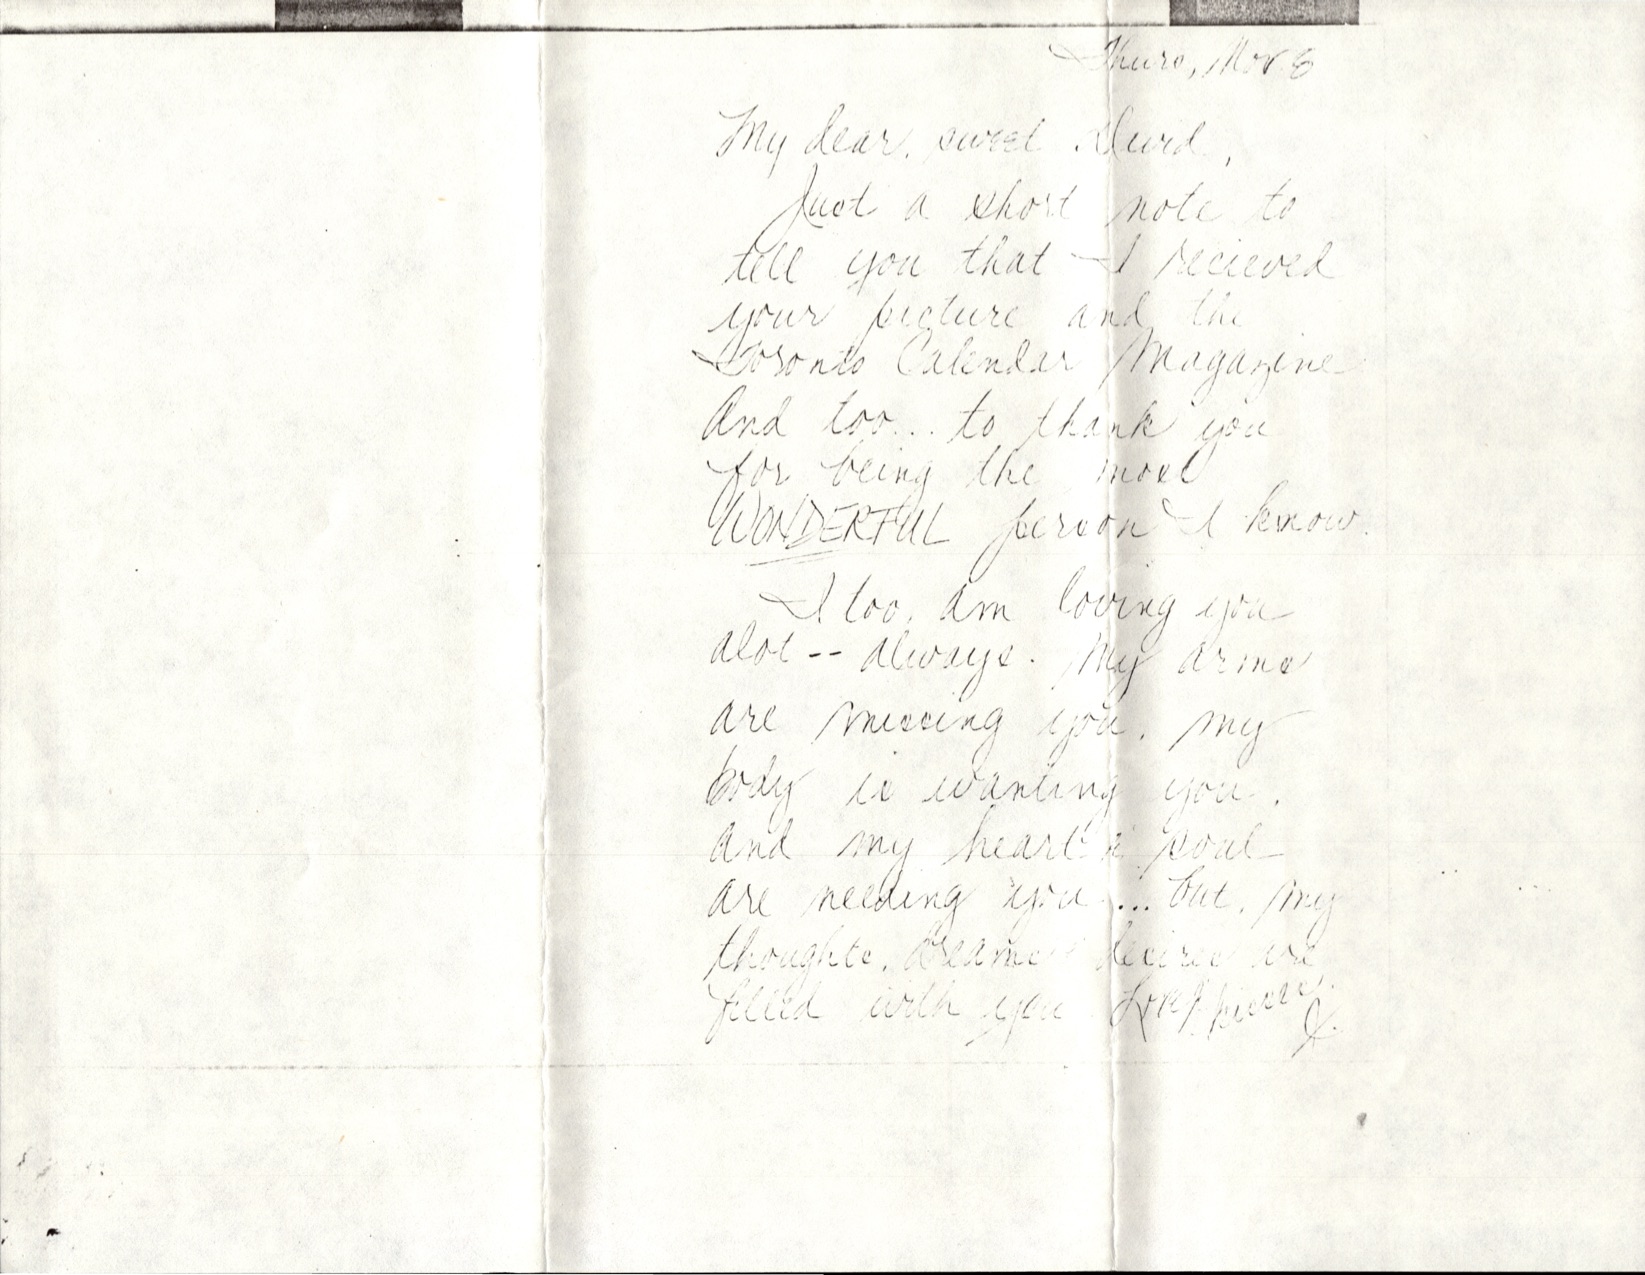 Thurs, Nov. 8
My dear, sweet David,
Just a short note to
tell you that I recieved
your picture and the
Toronto Calendar Magazine
And too... to thank you
for being the most
WONDERFUL person I know.
I too, am loving you
alot -- always. My arms
are missing you, my
body is wanting you,
and my heart & soul
are needing you... but, my
thoughts, dreams & desires are
filled with you. Love, Pierre